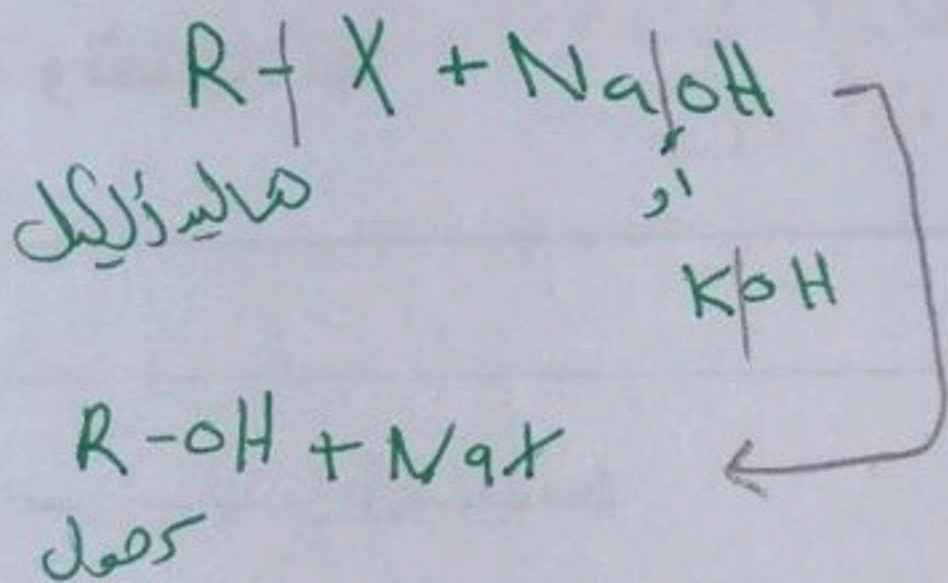 R-X + NaOH
هاليد ألكيل
او
KOH
R-OH + NaX
كحول